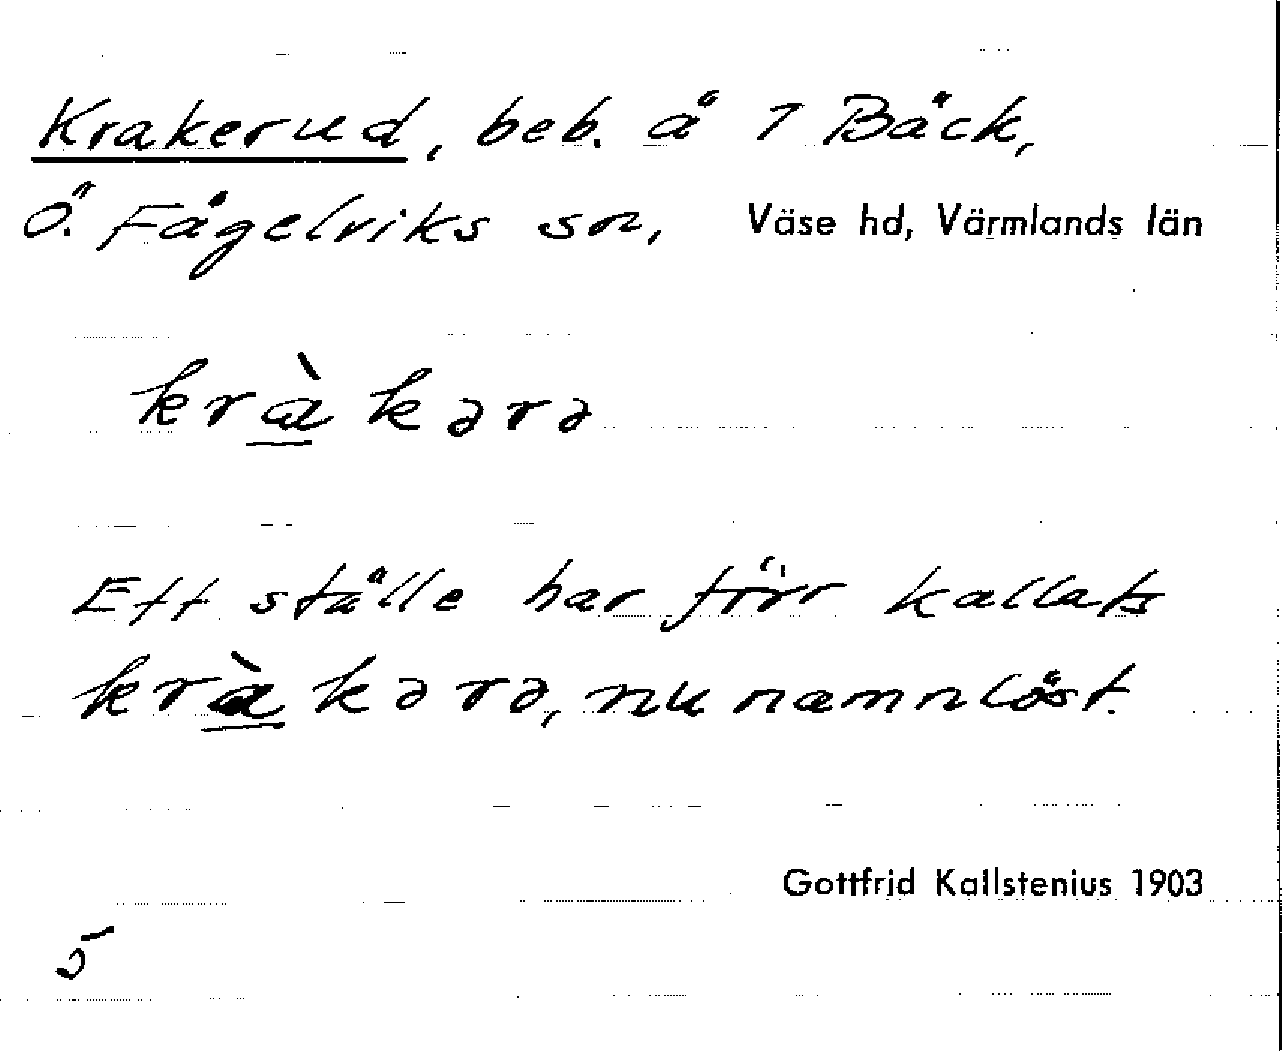 Krakerud, beb. å 1 Bäck,
Ö. Fågelviks sn, Väse hd, Värmlands län
kràkərə
Ett ställe har förr kallats
kràkərə, nu namnlöst.
Gottfrid Kallstenius 1903
5